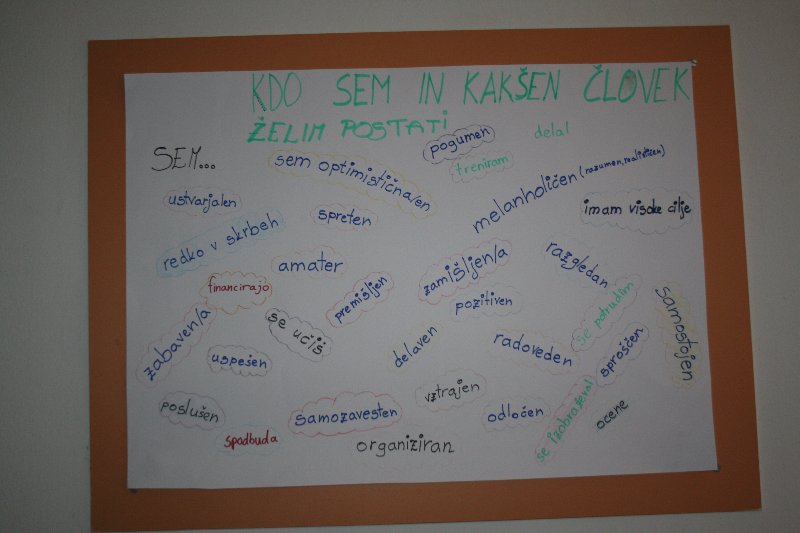 KDO SEM IN KAKŠEN ČLOVEK
ŽELIM POSTATI
SEM...
pogumen
delal
treniram
sem optimistična/en
melanholičen (razumen, realističen)
ustvarjalen
spreten
imam visoke cilje
redko v skrbeh
amater
zamišljen/a
razgledan
financirajo
premišljen
pozitiven
se potrudim
samostojen
zabaven/a
se učiš
delaven
radoveden
sproščen
uspešen
vztrajen
poslušen
samozavesten
odločen
se izobraževal
ocene
spodbuda
organiziran